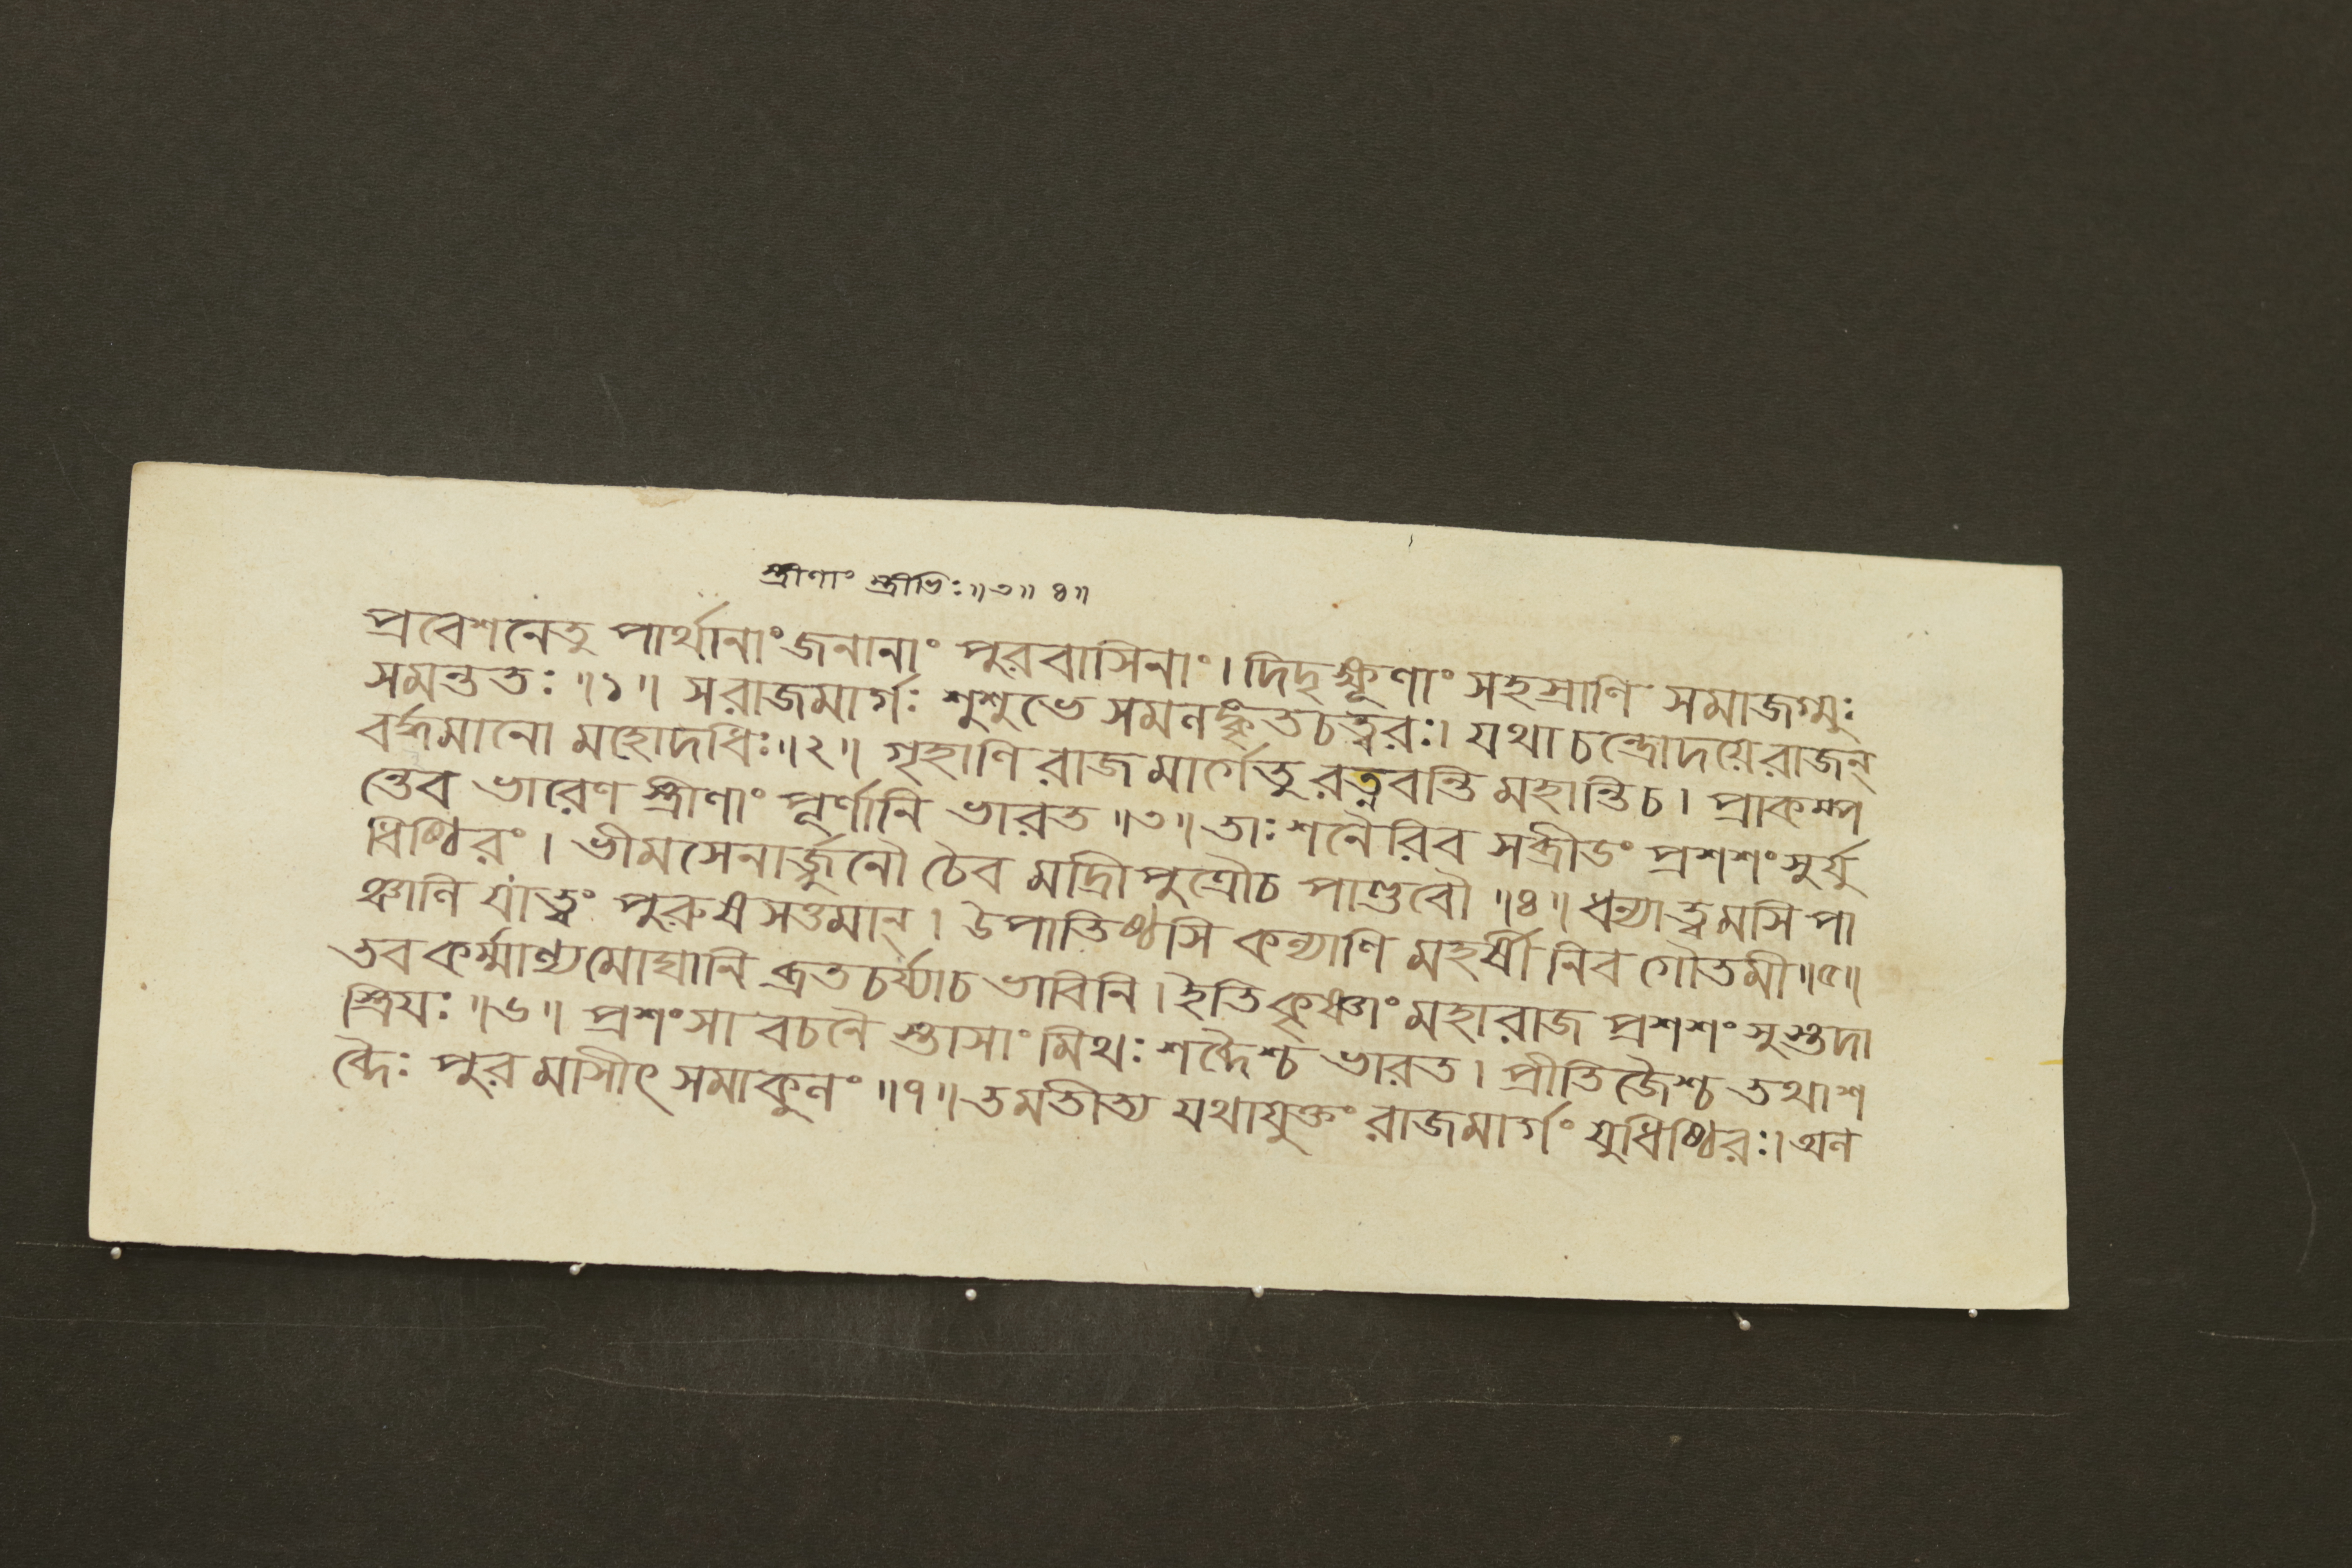 স্ত্রীণাং স্ত্রীভিঃ॥৩॥ ৪॥
প্রবেশনেতু পার্থানাং জনানাং পুরবাসিনাং। দিদৃক্ষূণাং সহস্রাণি সমাজগ্মুঃ
সমন্ততঃ ॥১॥ সরাজমার্গঃ শুশুভে সমলঙ্কৃতচত্বরঃ। যথা চন্দ্রোদয়েরাজন্
বর্দ্ধমানো মহোদধিঃ॥২॥ গৃহাণি রাজমার্গেতু রত্নবন্তি মহান্তি চ। প্রাকম্প
ন্তেব ভারেণ স্ত্রীণাং পূর্ণানি ভারত ॥৩॥ তাঃ শনৈরিব সব্রীডং প্রশশংসুর্যু
ধিষ্ঠিরং। ভীমসেনার্জ্জুনৌ চৈব মাদ্রীপুত্রৌচ পাণ্ডবৌ ॥৪॥ ধন্যাত্বমসি পা
ঞ্চালি যাত্বং পুরুষসত্তমান্। উপাতিষ্ঠসি কল্যাণি মহর্ষীনিব গৌতমী॥৫॥
তব কর্ম্মাণ্যমোঘানি ব্রতচর্য্যাচ ভাবিনি। ইতি কৃষ্ণাং মহারাজ প্রশশংসুস্তদা
স্ত্রিযঃ ॥৬॥ প্রশংসা বচনৈ স্তাসাং মিথঃ শব্দৈশ্চ ভারত। প্রীতিজৈশ্চ তথাশ
ব্দৈঃ পুরমাসীৎ সমাকুলং ॥৭॥ তমতীত্য যথাযুক্তং রাজমার্গং যুধিষ্ঠিরঃ। অল